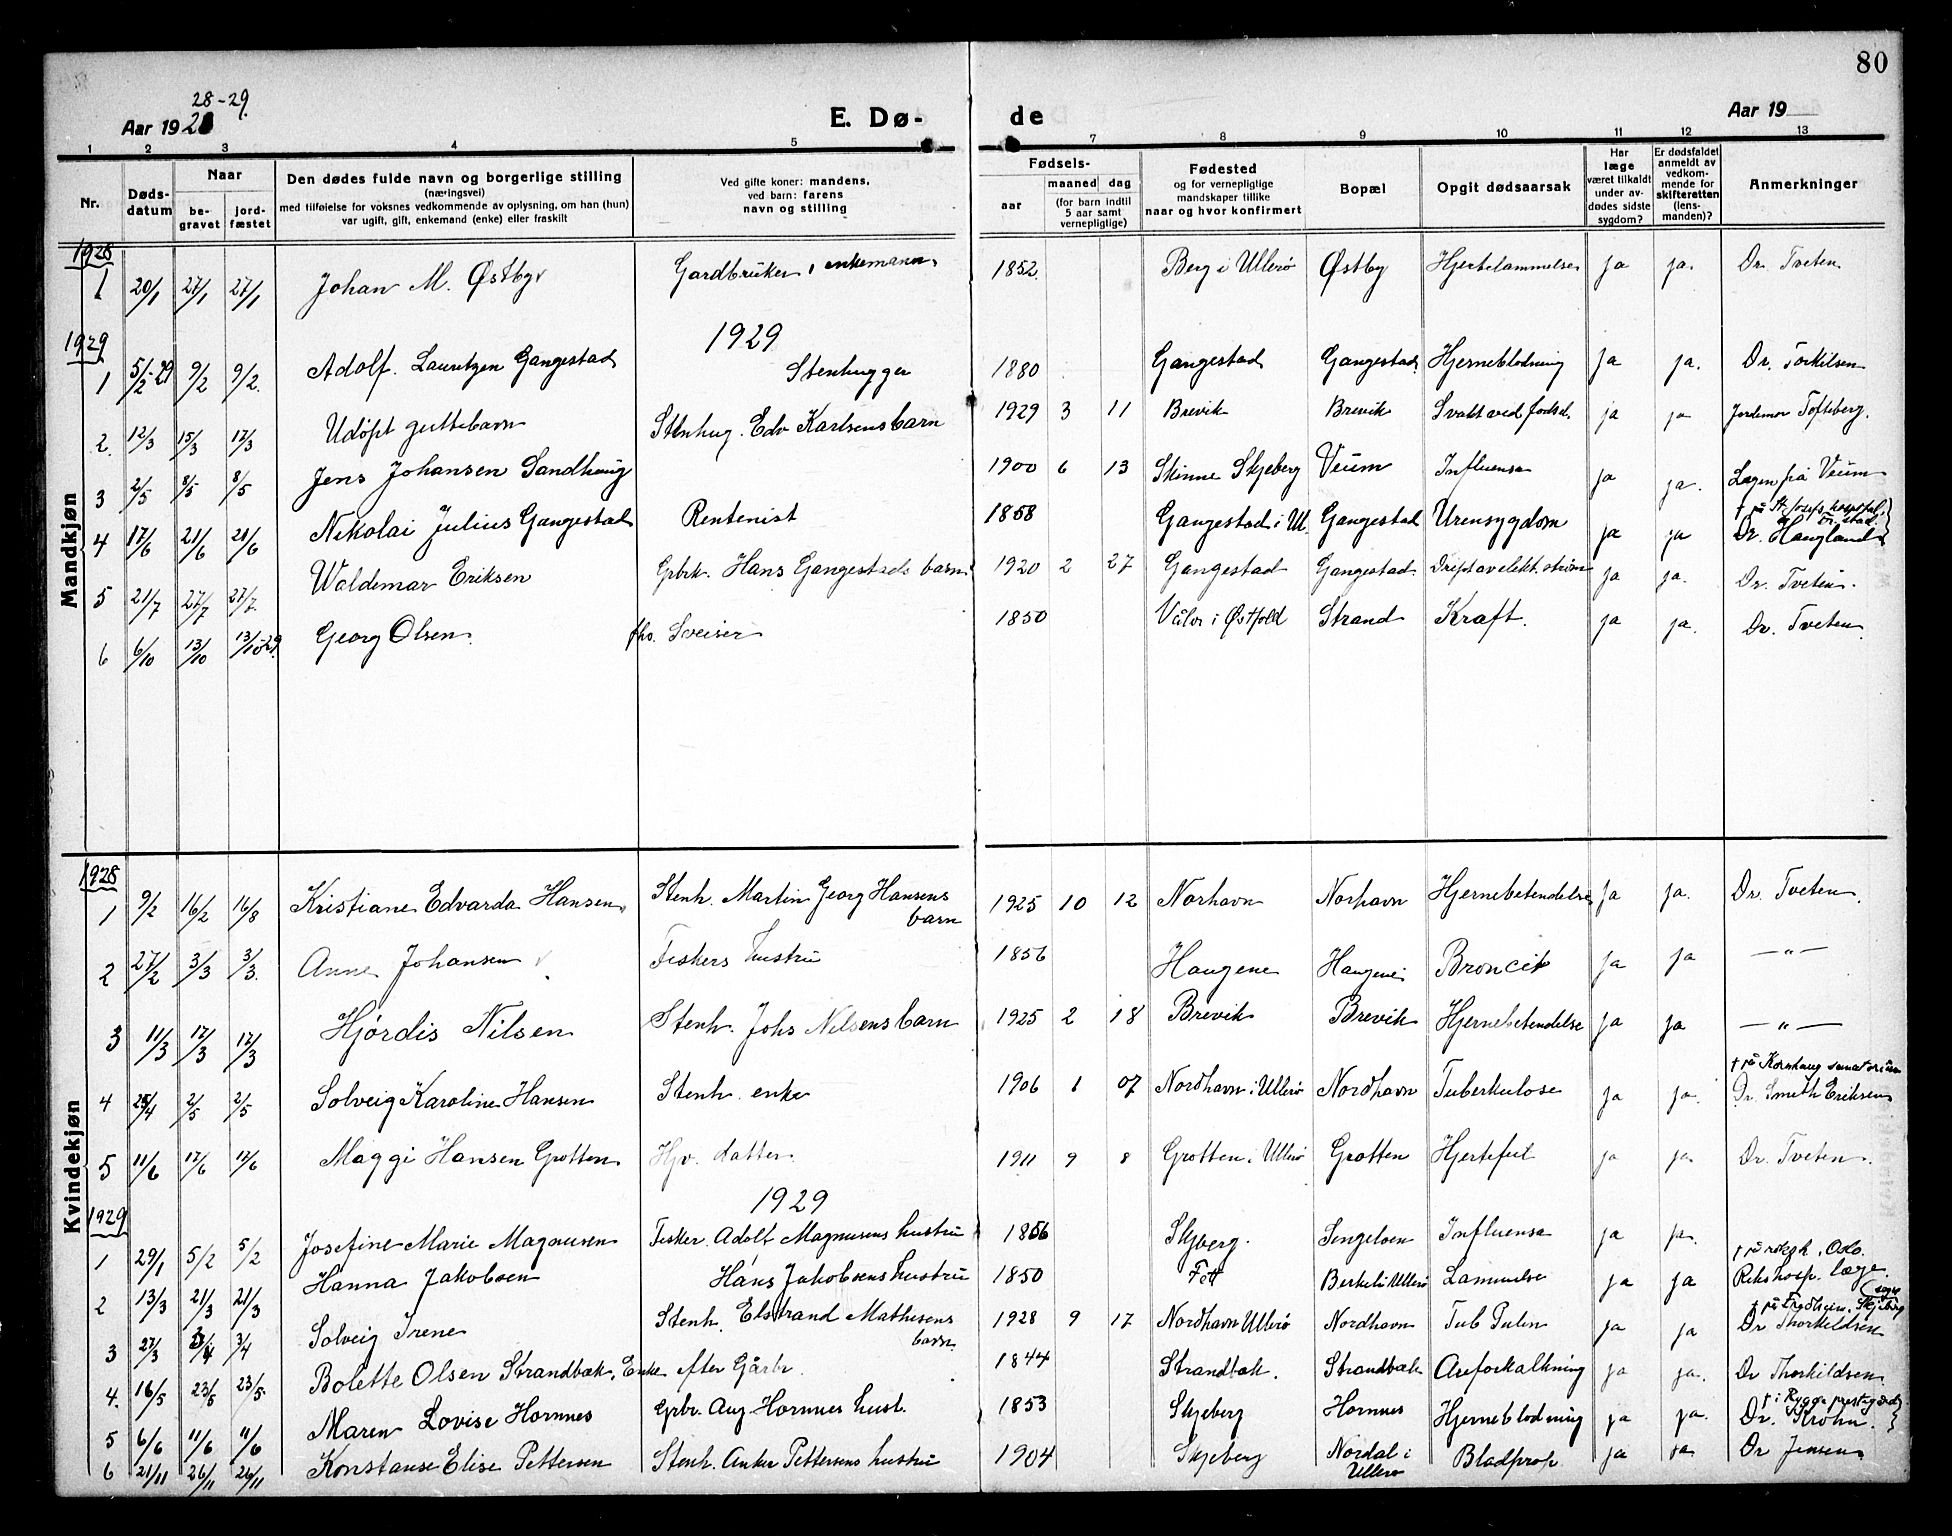 80
28-29.
Aar 192
E. Dø-
de
Aar 19
1 2 3 4 5 7 8 9 10 11 12 13
Nr.
Døds-
datum
Naar
be-
gravet
jord-
fæstet
Den dødes fulde navn og borgerlige stilling
(næringsvei)
med tilføielse for voksnes vedkommende av oplysning, om han (hun)
var ugift, gift, enkemand (enke) eller fraskilt
Ved gifte koner: mandens,
ved barn: farens
navn og stilling
Fødsels-
aar
maaned
dag
(for barn indtil
5 aar samt
vernepligtige)
Fødested
og for vernepligtige
mandskaper tillike
naar og hvor konfirmert
Bopæl
Opgit dødsaarsak
Har
læge
været tilkaldt
under av-
dødes sidste
sygdom?
Er dødsfaldet
anmeldt av
vedkom-
mende for
skifteretten
(lens-
manden)?
Anmerkninger
Mandkjøn
1928
1 20/1 27/1 27/1 Johan M. Østby Gardbruker, enkemann. 1852 Berg i Ullerø Østby Hjertelammelse ja ja. Dr. Tveten
1929
1929
1 5/2-29 9/2 9/2. Adolf. Lauritzen Gangestad Stenhugger 1880 Gangestad Gangestad Hjerneblødning ja ja. Dr. Torkilsen
2. 12/3 15/3 17/3 Udøpt guttebarn Stenhug. Edv Karlsens barn 1929 3 11 Brevik Brevik Svakt ved fødsel ja ja Jordemor Tofteberg.
3 2/5 8/5 8/5 Jens Johansen Sandhaug 1900 6 13 Skinne Skjeberg Veum Influensa ja ja. Lægen fra Veum
4 17/6 21/6 21/6 Nikolai Julius Gangestad Rentenist 1858 Gangestad i Ul. Gangestad Urensygdom ja ja † på St. Josefs hospital, Fr. stad.
Dr. Haugland
5 21/7 27/7 27/7. Waldemar Eriksen Grbrk. Hans Gangestads barn 1920 2 27 Gangestad Gangestad. Drept av elekt. strøm ja ja. Dr. Tveten.
6 6/10 13/10 13/10-29. Georg Olsen fhv. Sveiser 1850 Våler i Østfold Strand Kræft. ja ja. Dr. Tveten.
Kvindekjøn
1928
1 9/2 16/2 16/8 Kristiane Edvarda Hansen Stenh. Martin Georg Hansens
barn 1925 10 12 Norhavn Norhavn Hjernebetendelse ja ja. Dr. Tveten.
2 27/2 3/3 3/3. Anne Johansen Fiskers hustru 1856 Haugene Haugene Broncit ja ja —"—
3 11/3 17/3 17/3 Hjørdis Nilsen Stenh. Johs Nilsens barn 1925 2 18 Brevik Brevik Hjernebetendelse ja ja —"—
4 25/4 2/5 2/5 Solveig Karoline Hansen Stenh. enke 1906 1 07 Nordhavn i Ullerø Nordhavn Tuberkulose ja ja. † på Kornhaug sanatorium
Dr. Smith Eriksen
5 11/6 17/6 17/6 Maggi Hansen Grotten Hjv. datter. 1911 9 8 Grotten i Ullerø Grotten Hjertefeil ja ja. Dr. Tveten.
1929
1929
1 29/1 5/2 5/2 Josefine Marie Magnusen Fisker. Adolf Magnusens hustru 1856 Skjeberg. Singeløen Influensa ja ja.
2 13/3 21/3 21/3 Hanna Jakobsen Hans Jakobsens hustru 1850 Fett Berkeli Ullerø Lammelse ja ja † på rikgh. Oslo.
Rikshosp. læge.
3 27/3 3/4 3/4 Solveig Irene Stenh. Elstrand Mathisens
barn. 1928 9 17 Nordhavn Ullerø Nordhavn Tub Pulm ja ja † på Fredheim, Skjeberg
Dr Thorkildsen
4. 16/5 23/5 23/5. Bolette Olsen Strandbæk, Enke efter Gårbr. 1844 Strandbæk. Strandbæk Aareforkalkning ja ja. Dr Thorkildsen
5 6/6 11/6 11/6 Maren Lovise Hornnes Grbr. Aug. Hornnes hust. 1853 Skjeberg Hornnes Hjerneblødning ja ja. † i Rygge prestegjeld.
Dr. Krohn.
6 21/11 26/11 26/11 Konstanse Elise Pettersen Stenh. Anker Pettersens hustru 1904 Skjeberg Nordal i
Ullerø Blodprop ja ja Dr Jensen